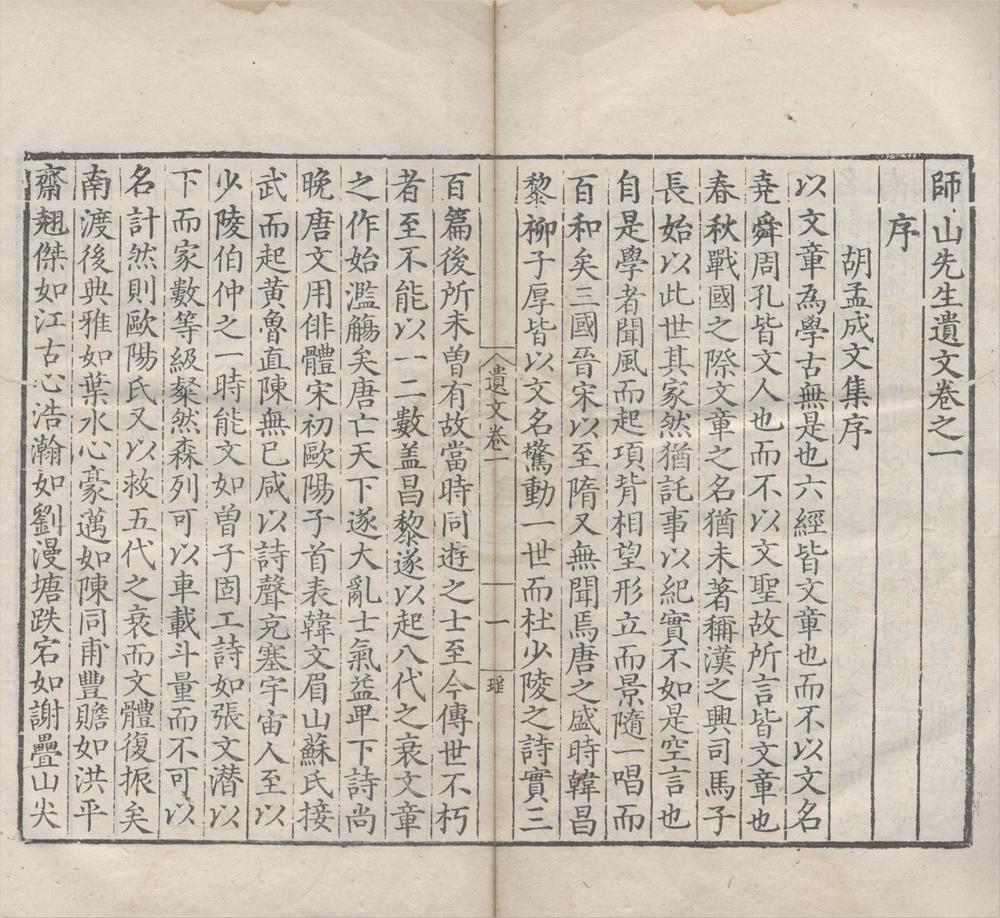 師山先生遺文卷之一
序
胡孟成文集序
以文章為學古無是也六經皆文章也而不以文名
堯舜周孔皆文人也而不以文聖故所言皆文章也
春秋戰國之際文章之名猶未著稱漢之興司馬子
長始以此世其家然猶託事以紀實不如是空言也
自是學者聞風而起項背相望形立而景隨一唱而
百和矣三國晉宋以至隋又無聞焉唐之盛時韓昌
黎柳子厚皆以文名驚動一世而杜少陵之詩實三
遺文卷一
一
瑳
百篇後所未曽有故當時同遊之士至今傳世不朽
者至不能以一二數盖昌黎遂以起八代之衰文章
之作始濫觴矣唐亡天下遂大亂士氣益卑下詩尚
晚唐文用俳體宋初歐陽子首表韓文眉山蘇氏接
武而起黄魯直陳無已咸以詩聲充塞宇宙人至以
少陵伯仲之一時能文如曽子固工詩如張文潜以
下而家數等級粲然森列可以車載斗量而不可以
名計然則歐陽氏又以救五代之衰而文體復振矣
南渡後典雅如葉水心豪邁如陳同甫豐贍如洪平
齋翹傑如江古心浩瀚如劉漫塘跌宕如謝疊山尖